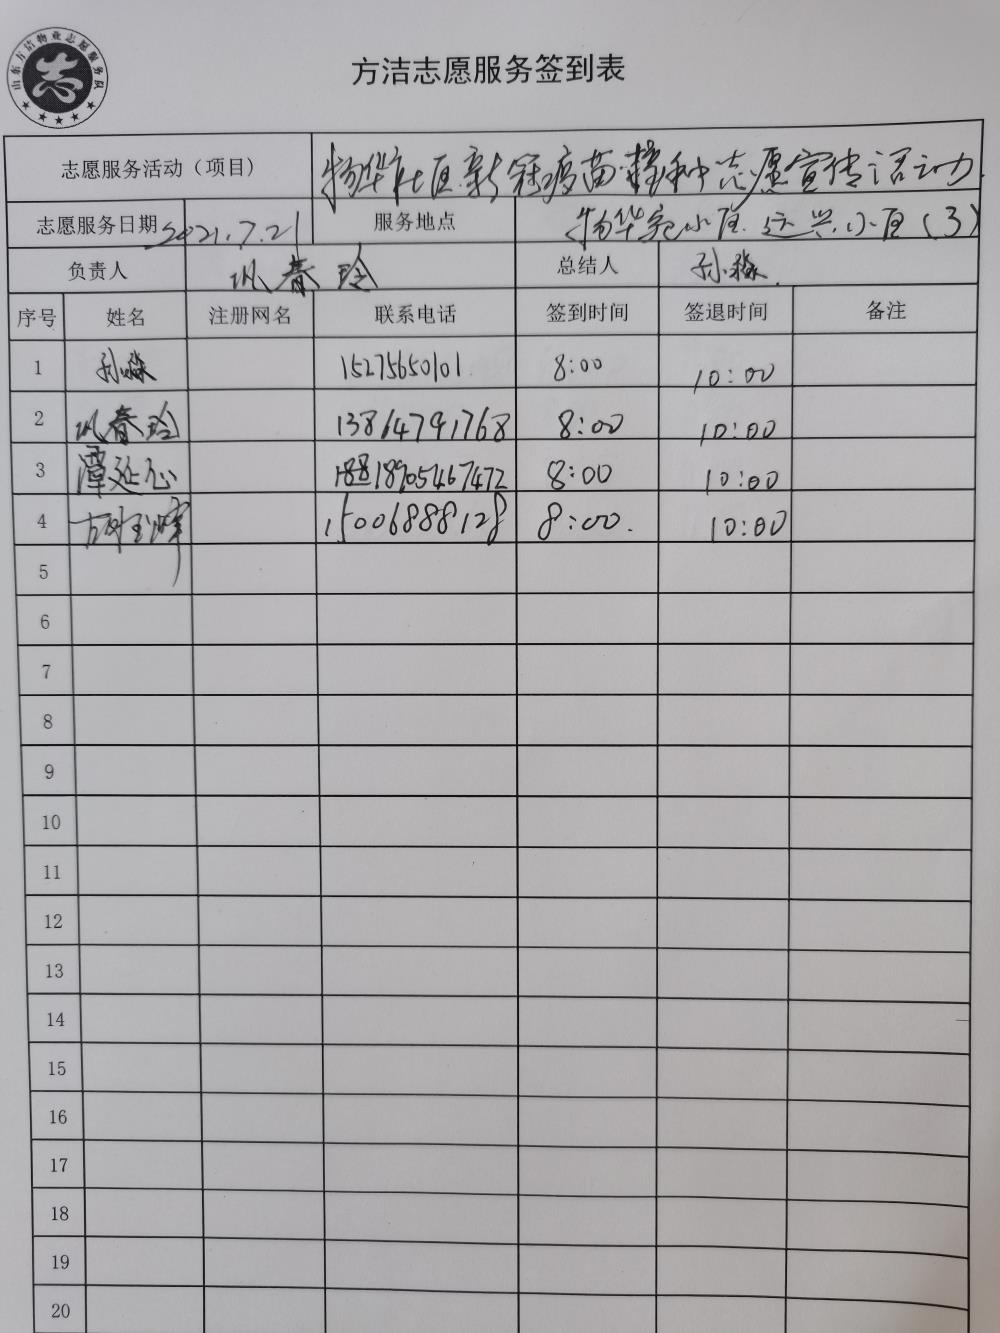 山东方洁物业志愿服务队
志
方洁志愿服务签到表
志愿服务活动（项目） 物华社区新冠疫苗接种志愿宣传活动.
志愿服务日期 2021.7.21 服务地点 物华苑小区.远兴小区（3）
负责人 巩春玲 总结人 孙淼.
序号 姓名 注册网名 联系电话 签到时间 签退时间 备注
1 孙淼 15275650101. 8:00 10:00
2 巩春玲 13864791768 8:00 10:00
3 覃延心 18905467472 8:00 10:00
4 15006888128 8:00. 10:00
5
6
7
8
9
10
11
12
13
14
15
16
17
18
19
20